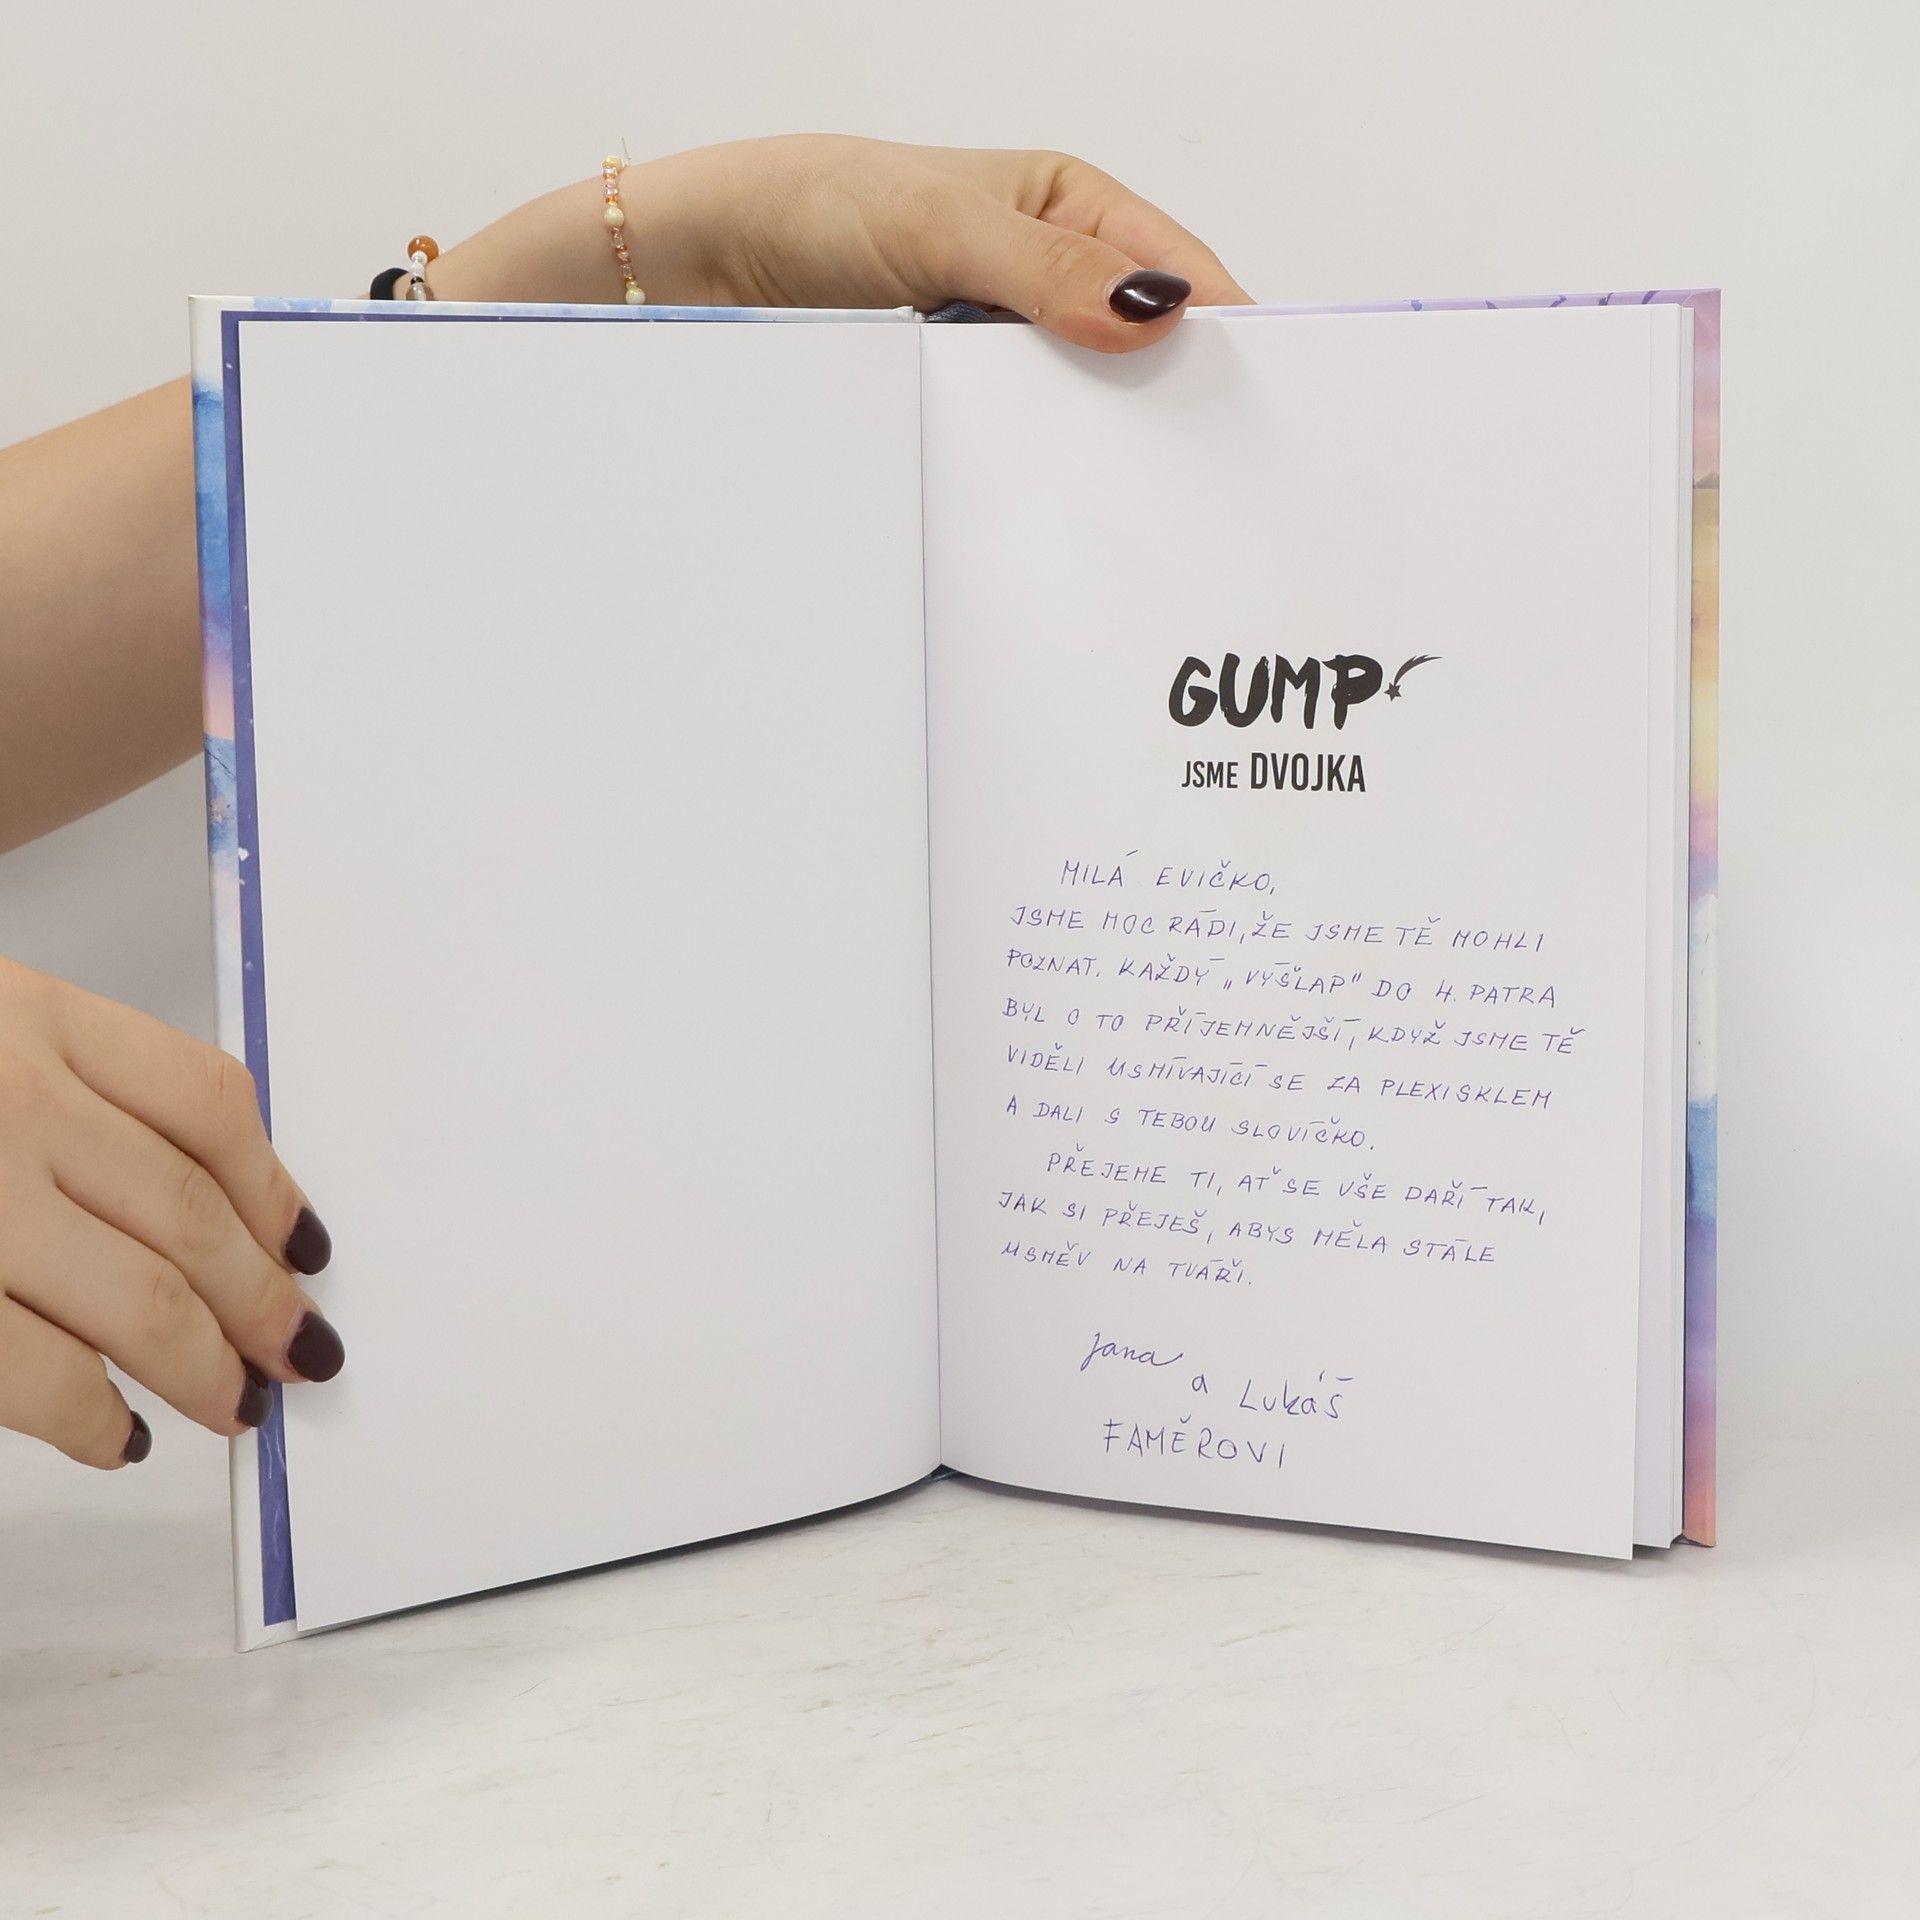 GUMP
JSME DVOJKA
MILÁ EVIČKO,
JSME MOC RÁDI, ŽE JSME TĚ MOHLI
POZNAT. KAŽDÝ „VÝŠLAP" DO 4. PATRA
BYL O TO PŘÍJEMNĚJŠÍ, KDYŽ JSME TĚ
VIDĚLI USMÍVAJÍCÍ SE ZA PLEXISKLEM
A DALI S TEBOU SLOVÍČKO.
PŘEJEME TI, AŤ SE VŠE DAŘÍ TAK,
JAK SI PŘEJEŠ, ABYS MĚLA STÁLE
USMĚV NA TVÁŘI.
Jana
a Lukáš
FAMĚROVI